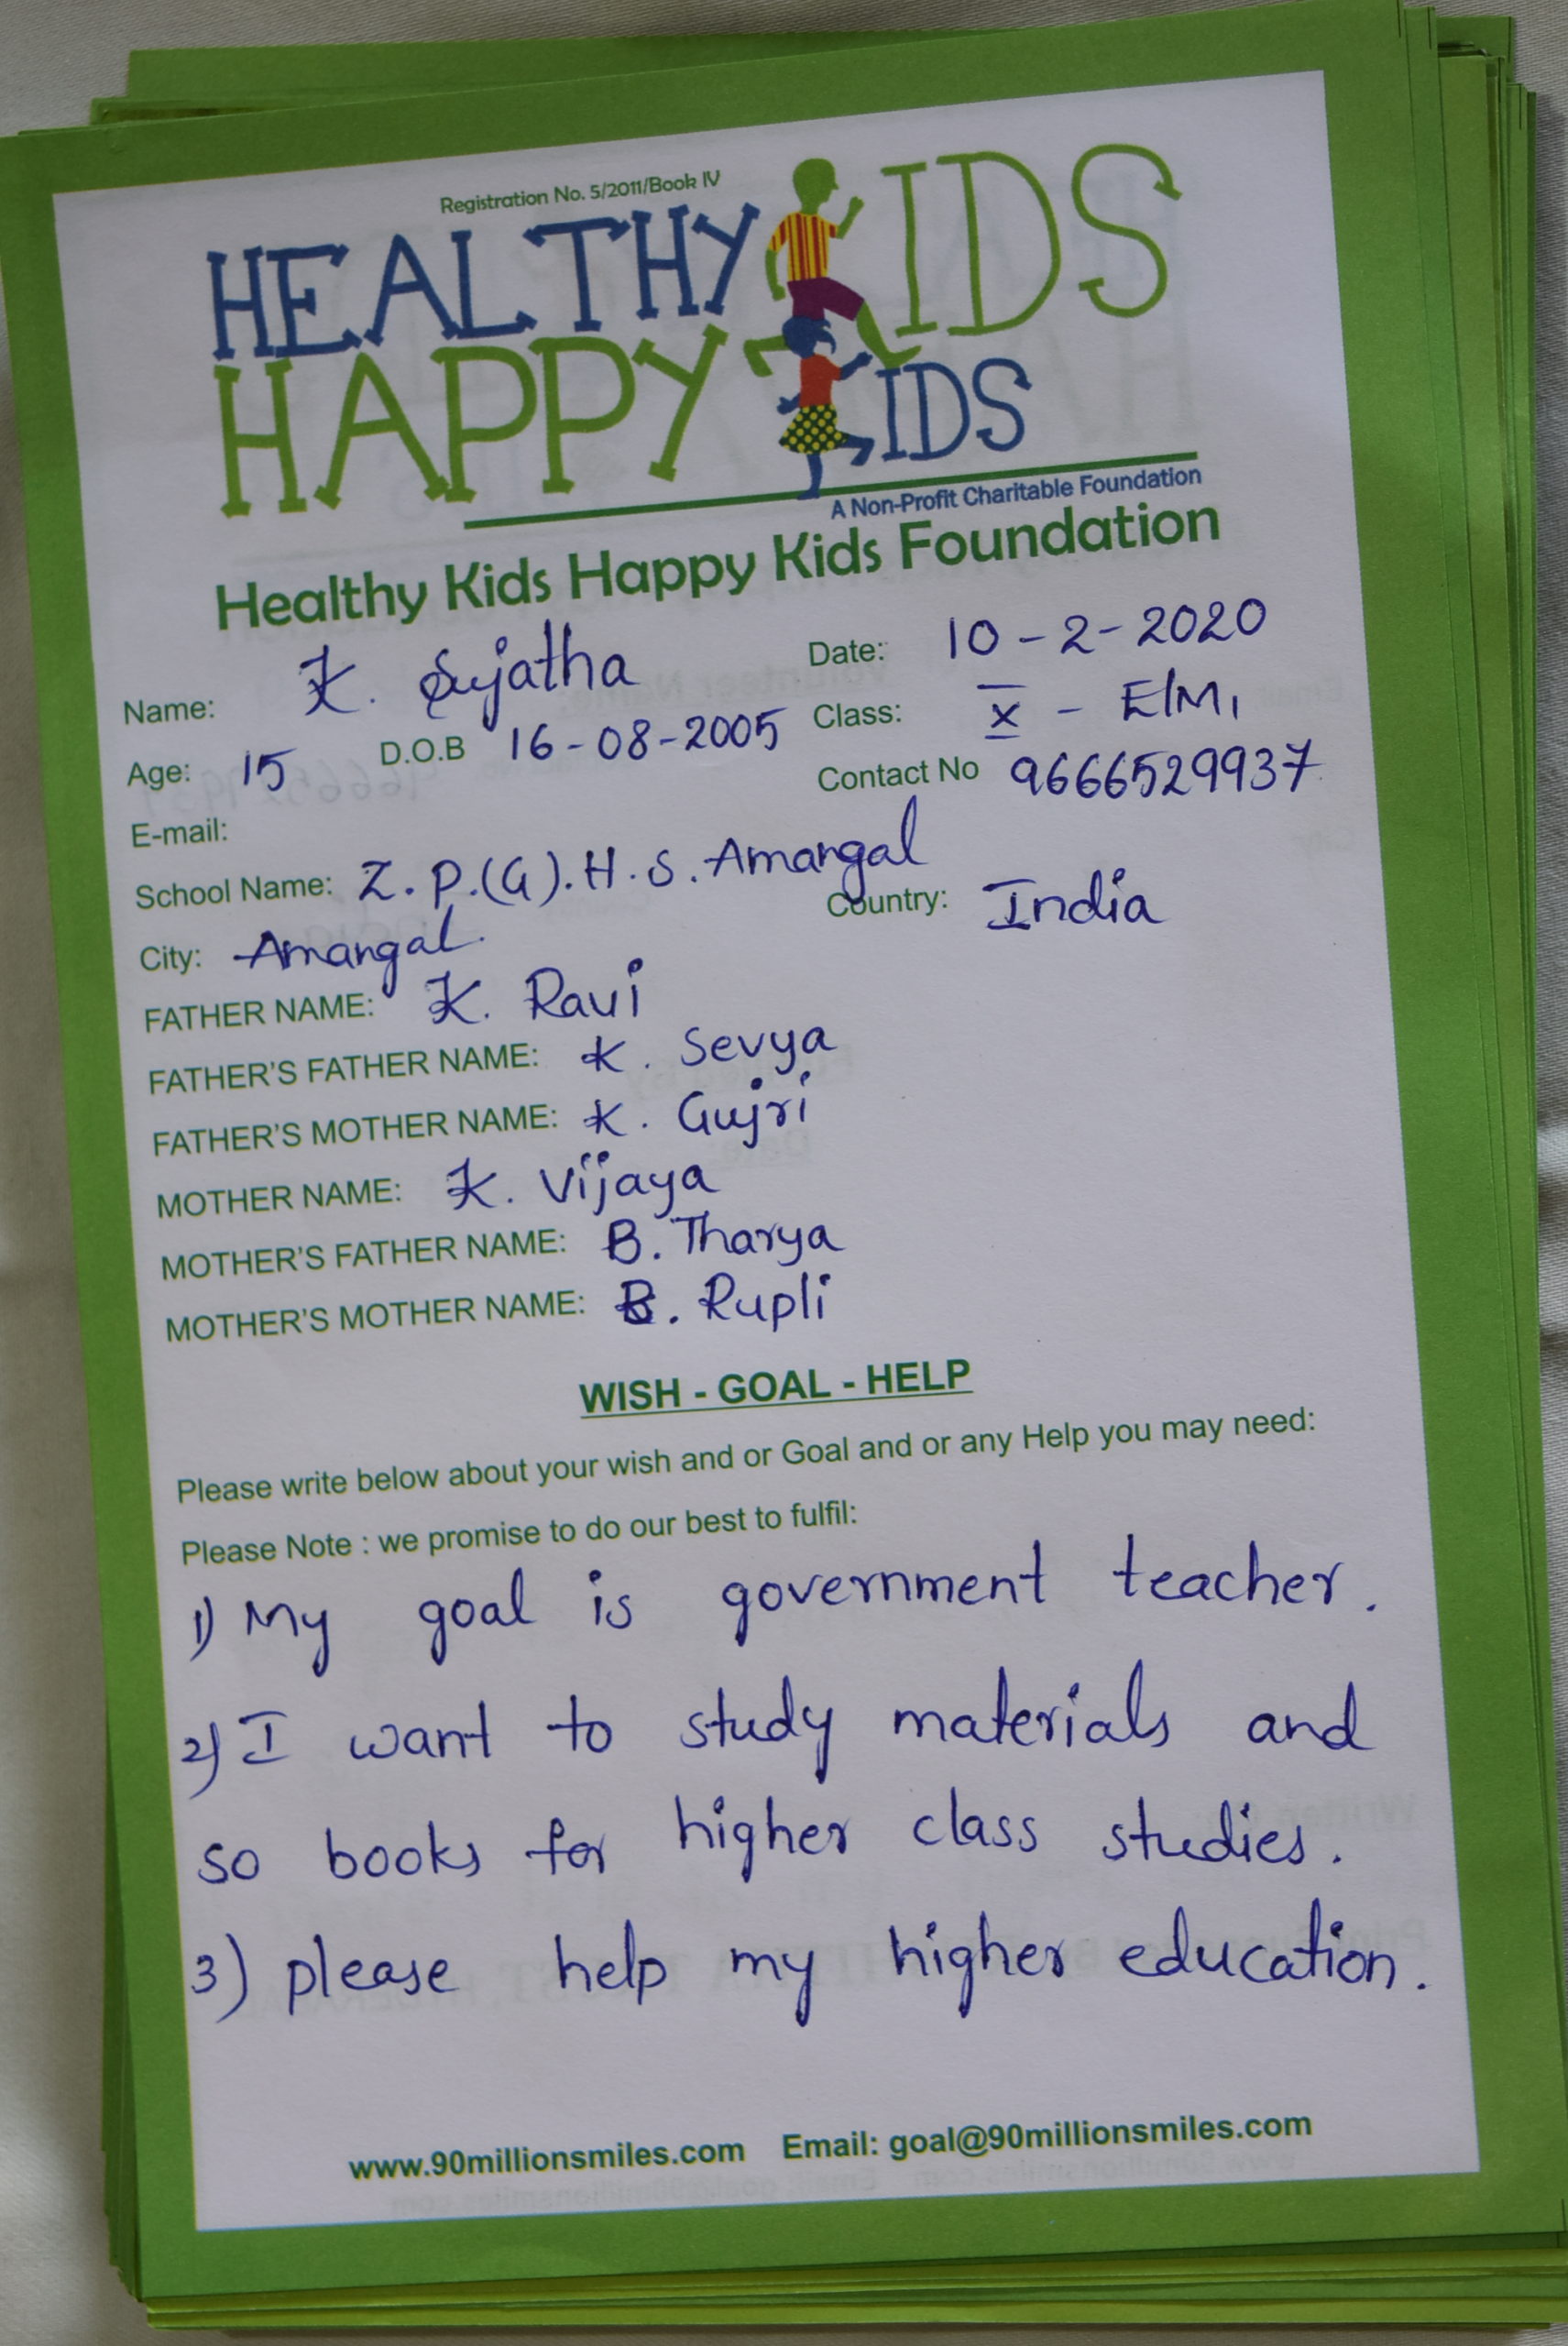 Registration No. 5/2011/Book IV
HEALTHY KIDS
HAPPY KIDS
A Non-Profit Charitable Foundation
Healthy Kids Happy Kids Foundation
Name: K. Sujatha Date: 10-2-2020
Age: 15 D.O.B 16-08-2005 Class: X - E/M,
Contact No 9666529937
E-mail:
School Name: Z.P.(G).H.S. Amangal
City: Amangal. Country: India
FATHER NAME: K. Ravi
FATHER'S FATHER NAME: K. Sevya
FATHER'S MOTHER NAME: K. Gujri
MOTHER NAME: K. Vijaya
MOTHER'S FATHER NAME: B. Tharya
MOTHER'S MOTHER NAME: B. Rupli
WISH - GOAL - HELP
Please write below about your wish and or Goal and or any Help you may need:
Please Note : we promise to do our best to fulfil:
1) My goal is government teacher.
2) I want to study materials and
so books for higher class studies.
3) please help my higher education.
www.90millionsmiles.com Email: goal@90millionsmiles.com